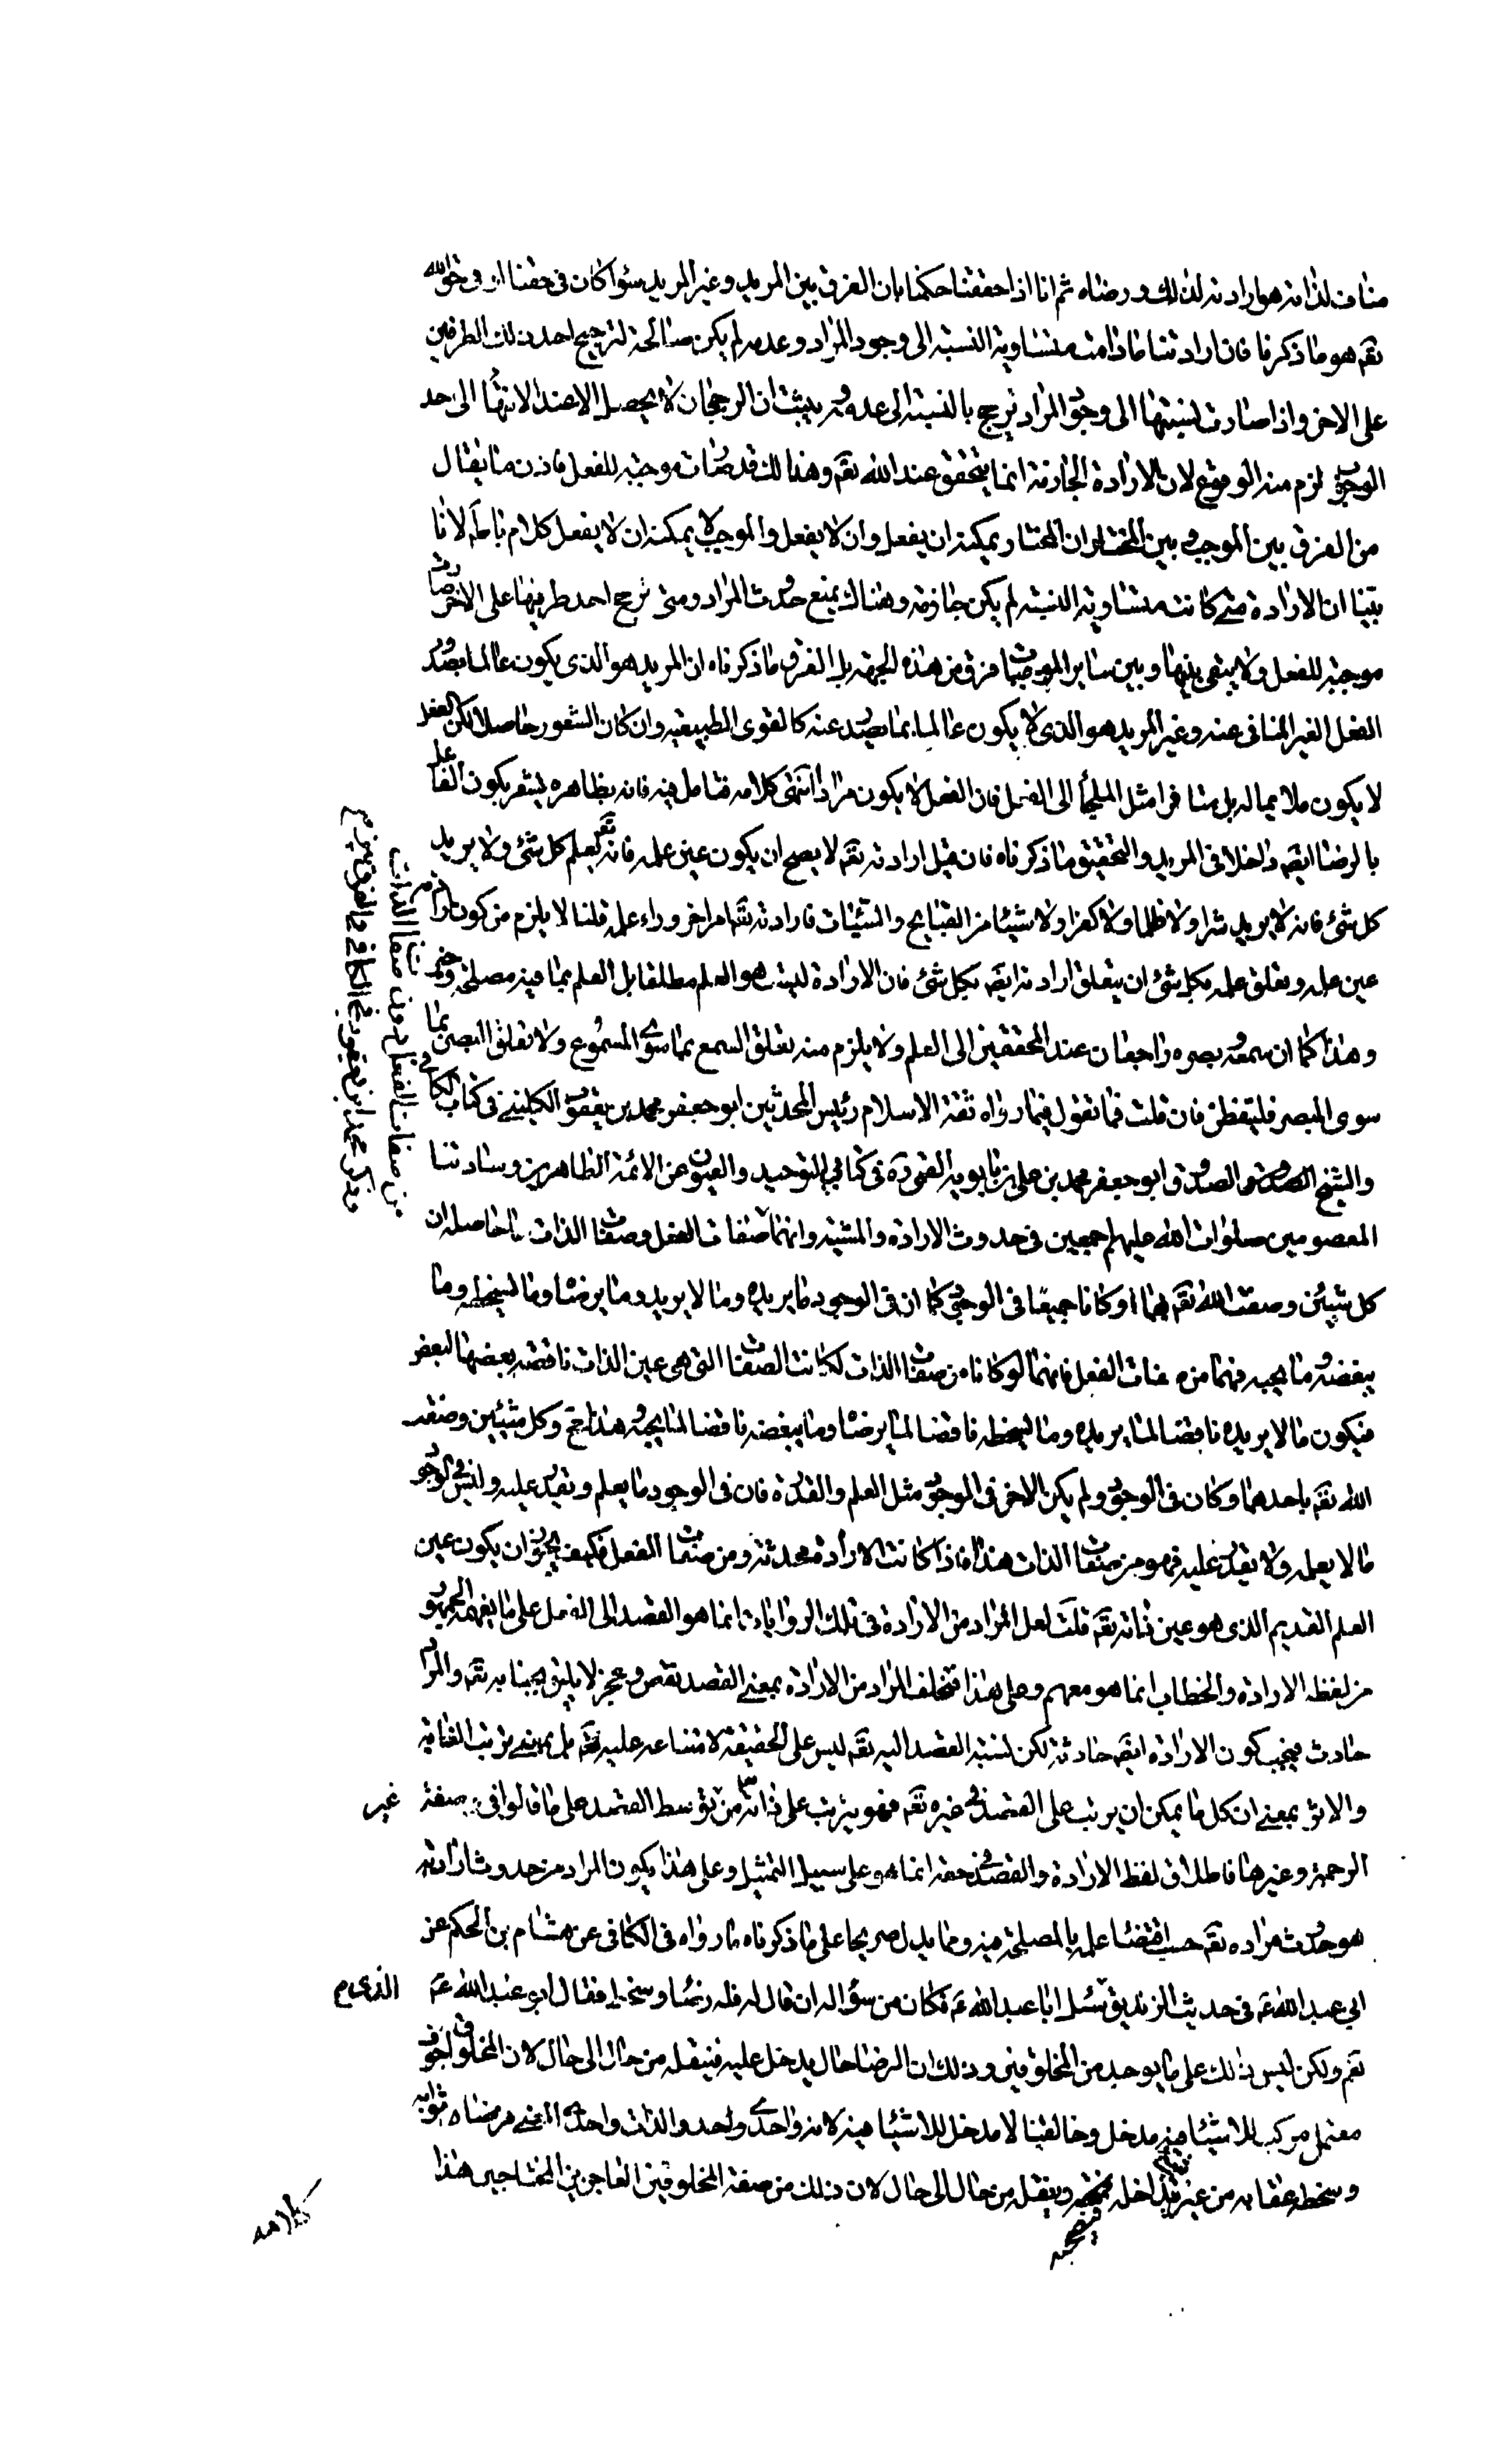 مناف لذاته هو ارادته لذلك ورضاه ثم انا اذا حققنا حكمنا بان الفرق بين المريد وغير المريد سواء كان في حقنا او في حق الله
تعم هو ما ذكرنا فان ارادتنا ما دامت متساوية النسبة الى وجود المراد وعدمه لم يكن صالحة لترجيح احد ذلك الطرفين
على الاخر واذا صارت نسبتها الى وجود المراد ترجح بالنسبة الى عدمه وثبت ان الرجحان لا يحصل الا عند الانتهاء الى حد
الوجوب لزم منه الوقوع لان الارادة الجازمة انما يتحقق عند الله تعم وهنالك قد صارت موجبة للفعل فاذن ما يقال
من الفرق بين الموجب وبين المختار ان المختار يمكنه ان يفعل وان لا يفعل والموجب لا يمكنه ان لا يفعل كلام باطل لانا
بينا ان الارادة متى كانت متساوية النسبة لم يكن جازمة وهناك يمتنع حدوث المراد ومتى ترجح احد طرفيها على الاخر صارت
موجبة للفعل ولا يبقى بينها وبين ساير الموجبات فرق من هذه الجهة بل الفرق ما ذكرناه ان المريد هو الذى يكون عالما بصدور
الفعل الغير المنافى عنه وغير المريد هو الذى لا يكون عالما بما يصدر عنه كالقوى الطبيعيه وان كان الشعور حاصلا لكن الفعل
لا يكون ملايما له بل منافرا مثل الملجأ الى الفعل فان الفعل لا يكون مرادا انتهى كلامه فتامل فيه فانه بظاهره يشعر بكون الفاعل
بالرضا ايضه داخلا فى المريد والتحقيق ما ذكرناه فان قيل ارادته تعم لا يصح ان يكون عين علمه فانه تعم يعلم كل شئ ولا يريد
كل شئ فانه لا يريد شرا ولا ظلما ولا كفرا ولا شيئا من القبايح والسيئات فارادته تعم امر اخر وراء علمه قلنا لا يلزم من كون ارادته
عين علمه وتعلق علمه بكل شئ ان يتعلق ارادته ايضه بكل شئ فان الارادة ليست هو العلم مطلقا بل العلم بما فيه مصلحة وخير
وهذا كما ان سمعه وبصره راجعان عند المحققين الى العلم ولا يلزم منه تعلق السمع بما سوى المسموع ولا تعلق البصر بما
سوى المبصر فليتفطن فان قلت فما تقول فيما رواه ثقة الاسلام رئيس المحدثين ابو جعفر محمد بن يعقوب الكلينى فى كتاب الكافى
والشيخ الصدوق ابو جعفر محمد بن على بن بابويه القمى ره فى كتابى التوحيد والعيون عن الائمة الطاهرين وسادتنا
المعصومين صلوات الله عليهم اجمعين فى حدوث الارادة والمشية وانهما من صفات الفعل دون صفات الذات وذكر محمد ابن يعقوب فى الكافى فى الفرق بين صفات الفعل وصفات الذات ما حاصله ان
كل شيئين وصفت الله تعم بهما وكانا جميعا فى الوجود كما ان فى الوجود ما يريده وما لا يريد وما يرضاه وما يسخطه وما
يبغضه وما يحبه فهما من صفات الفعل فانهما لو كانا من صفات الذات لكانت الصفات التى هى عين الذات ناقضة بعضها لبعض
فيكون ما لا يريده ناقضا لما يريده وما يسخطه ناقضا لما يرضاه وما يبغضه ناقضا لما يحبه هذا خ وكل شيئين وصفت
الله تعم باحدهما وكان فى الوجود ولم يكن الاخر فى الوجود مثل العلم والقدرة فان فى الوجود ما يعلم ويقدر عليه وليس فى الوجود
ما لا يعلمه ولا يقدر عليه فهو من صفات الذات هذا فاذا كانت الارادة محدثة ومن صفات الفعل فكيف يجوز ان يكون عين
العلم القديم الذى هو عين ذاته تعم قلت لعل المراد من الارادة فى تلك الروايات انما هو القصد الى الفعل على ما يفهمه الجمهور
من لفظ الارادة والخطاب انما هو معهم وعلى هذا فتخلف المراد من الارادة بمعنى القصد نقص وعجز لا يليق بجنابه تعم والمراد
حادث فيجب كون الارادة ايضه حادثة لكن نسبة القصد اليه تعم ليس على الحقيقة لامتناعه عليه تعم بل بمعنى ترتب الغاية
والاثر بمعنى ان كل ما يمكن ان يرتب على القصد فى غيره تعم فهو يترتب على ذاته من غير توسط القصد على ما قالوا فى صفة
الرحمة وغيرها فاطلاق لفظ الارادة والقصد فى حقه انما هو على سبيل التمثيل وعلى هذا يكون المراد من حدوث ارادته
هو حدوث مراده تعم حسب اقتضاء علمه بالمصلحة فيه ومما يدل صريحا على ما ذكرناه ما رواه فى الكافى عن هشام بن الحكم عن
ابي عبد الله ع فى حديث الزنديق الذى سئل ابا عبد الله ع فكان من سؤاله ان قال له فله رضا وسخط فقال ابو عبد الله ع
نعم ولكن ليس ذلك على ما يوجد من المخلوقين وذلك ان الرضا حال يدخل عليه فينقله من حال الى حال لان المخلوق اجوف
معتمل مركب للاشياء فيه مدخل وخالقنا لا مدخل للاشياء فيه لانه واحد واحدى الذات واحدى المعنى فرضاه ثوابه
وسخطه عقابه من غير شئ يتداخله فيهيجه وينقله من حال الى حال لان ذلك من صفة المخلوقين العاجزين المحتاجين هذا
كلامه